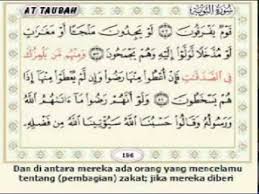 AT TAUBAH
سُورَةُ التَّوْبَةِ
قَوْمٌ يَفْرَقُونَ ﴿٥٦﴾ لَوْ يَجِدُونَ مَلْجَأً أَوْ مَغَٰرَٰتٍ
أَوْ مُدَّخَلًا لَّوَلَّوْا۟ إِلَيْهِ وَهُمْ يَجْمَحُونَ ﴿٥٧﴾ وَمِنْهُم مَّن يَلْمِزُكَ
فِى ٱلصَّدَقَٰتِ فَإِنْ أُعْطُوا۟ مِنْهَا رَضُوا۟ وَإِن لَّمْ يُعْطَوْا۟ مِنْهَآ إِذَا
هُمْ يَسْخَطُونَ ﴿٥٨﴾ وَلَوْ أَنَّهُمْ رَضُوا۟ مَآ ءَاتَىٰهُمُ ٱللَّهُ
وَرَسُولُهُۥ وَقَالُوا۟ حَسْبُنَا ٱللَّهُ سَيُؤْتِينَا ٱللَّهُ
196
Dan di antara mereka ada orang yang mencelamu
tentang (pembagian) zakat; jika mereka diberi